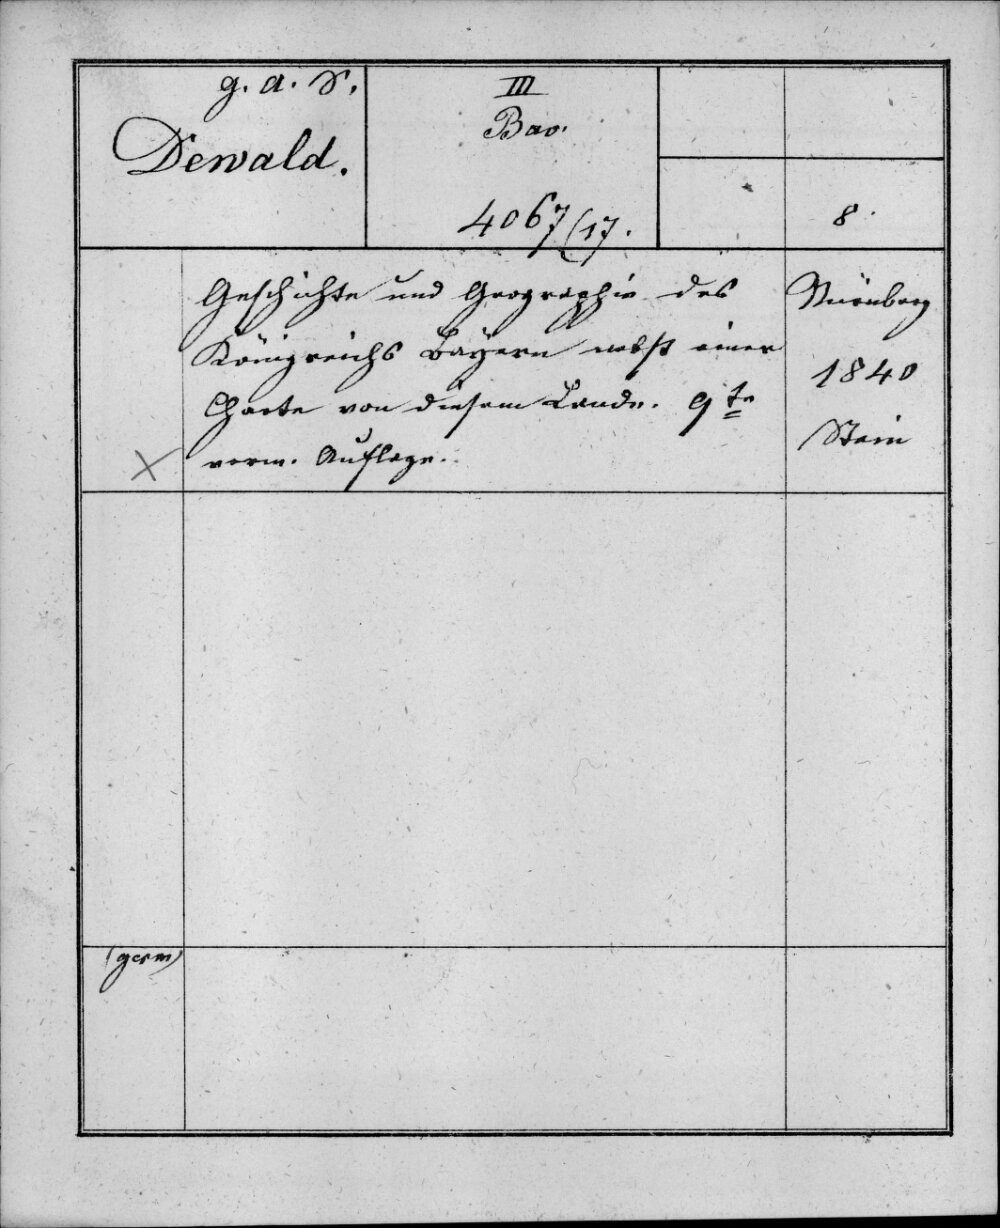 g. a. S.
Dewald.
III
Bav.
4067(17.
8.
Geschichte und Geographie des
Königreichs Bayern nebst einer
Charte von diesem Lande. 9te
verm. Auflage.
Nürnberg
1840
Stein
X
(germ)